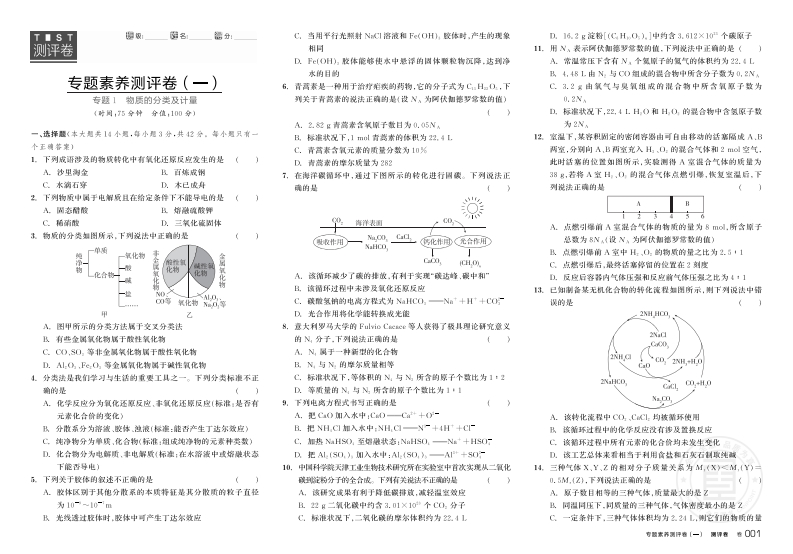 TEST
测评卷
班级:
姓名:
得分:
专题素养测评卷(一)
专题1 物质的分类及计量
(时间:75分钟 分值:100分)
一、选择题(本大题共14小题,每小题3分,共42分。每小题只有一
个正确答案)
1. 下列成语涉及的物质转化中有氧化还原反应发生的是 ( )
A. 沙里淘金 B. 百炼成钢
C. 水滴石穿 D. 木已成舟
2. 下列物质中属于电解质且在给定条件下不能导电的是 ( )
A. 固态醋酸 B. 熔融硫酸钾
C. 稀硝酸 D. 三氧化硫固体
3. 物质的分类如图所示,下列说法中正确的是 ( )
纯净物
单质
化合物
氧化物
酸
碱
盐
……
甲
非金属氧化物
酸性氧化物
碱性氧化物
金属氧化物
NO
CO等
氧化物
Al₂O₃、
Na₂O₂等
乙
A. 图甲所示的分类方法属于交叉分类法
B. 有些金属氧化物属于酸性氧化物
C. CO、SO₂等非金属氧化物属于酸性氧化物
D. Al₂O₃、Fe₂O₃等金属氧化物属于碱性氧化物
4. 分类法是我们学习与生活的重要工具之一。下列分类标准不正
确的是 ( )
A. 化学反应分为氧化还原反应、非氧化还原反应(标准:是否有
元素化合价的变化)
B. 分散系分为溶液、胶体、浊液(标准:能否产生丁达尔效应)
C. 纯净物分为单质、化合物(标准:组成纯净物的元素种类)
D. 化合物分为电解质、非电解质(标准:在水溶液中或熔融状态
下能否导电)
5. 下列关于胶体的叙述不正确的是 ( )
A. 胶体区别于其他分散系的本质特征是其分散质的粒子直径
为10⁻⁹~10⁻⁷ m
B. 光线透过胶体时,胶体中可产生丁达尔效应
C. 当用平行光照射NaCl溶液和Fe(OH)₃胶体时,产生的现象
相同
D. Fe(OH)₃胶体能够使水中悬浮的固体颗粒物沉降,达到净
水的目的
6. 青蒿素是一种用于治疗疟疾的药物,它的分子式为C₁₅H₂₂O₅,下
列关于青蒿素的说法正确的是(设N_A为阿伏伽德罗常数的值)
( )
A. 2.82 g青蒿素含氧原子数目为0.05N_A
B. 标准状况下,1 mol青蒿素的体积为22.4 L
C. 青蒿素含氧元素的质量分数为10%
D. 青蒿素的摩尔质量为282
7. 在海洋碳循环中,通过下图所示的转化进行固碳。下列说法正
确的是 ( )
CO₂ 海洋表面 CO₂
吸收作用
Na₂CO₃
NaHCO₃
CaCl₂
钙化作用
光合作用
CaCO₃
(CH₂O)ₙ
A. 该循环减少了碳的排放,有利于实现“碳达峰、碳中和”
B. 该循环过程中未涉及氧化还原反应
C. 碳酸氢钠的电离方程式为NaHCO₃══Na⁺+H⁺+CO₃²⁻
D. 光合作用将化学能转换成光能
8. 意大利罗马大学的Fulvio Cacace等人获得了极具理论研究意义
的N₄分子,下列说法正确的是 ( )
A. N₄属于一种新型的化合物
B. N₄与N₂的摩尔质量相等
C. 标准状况下,等体积的N₄与N₂所含的原子个数比为1∶2
D. 等质量的N₄与N₂所含的原子个数比为1∶1
9. 下列电离方程式书写正确的是 ( )
A. 把CaO加入水中:CaO══Ca²⁺+O²⁻
B. 把NH₄Cl加入水中:NH₄Cl══N³⁻+4H⁺+Cl⁻
C. 加热NaHSO₄至熔融状态:NaHSO₄══Na⁺+HSO₄⁻
D. 把Al₂(SO₄)₃加入水中:Al₂(SO₄)₃══Al³⁺+SO₄²⁻
10. 中国科学院天津工业生物技术研究所在实验室中首次实现从二氧化
碳到淀粉分子的全合成。下列有关说法不正确的是 ( )
A. 该研究成果有利于降低碳排放,减轻温室效应
B. 22 g二氧化碳中约含3.01×10²³个CO₂分子
C. 标准状况下,二氧化碳的摩尔体积约为22.4 L
D. 16.2 g淀粉[(C₆H₁₀O₅)ₙ]中约含3.612×10²³个碳原子
11. 用N_A表示阿伏伽德罗常数的值,下列说法中正确的是 ( )
A. 常温常压下含有N_A个氦原子的氦气的体积约为22.4 L
B. 4.48 L由N₂与CO组成的混合物中所含分子数为0.2N_A
C. 3.2 g由氧气与臭氧组成的混合物中所含氧原子数为
0.2N_A
D. 标准状况下,22.4 L H₂O和H₂O₂的混合物中含氢原子数
为2N_A
12. 室温下,某容积固定的密闭容器由可自由移动的活塞隔成A、B
两室,分别向A、B两室充入H₂、O₂的混合气体和2 mol空气,
此时活塞的位置如图所示,实验测得A室混合气体的质量为
38 g,若将A室H₂、O₂的混合气体点燃引爆,恢复室温后,下
列说法正确的是 ( )
A B
1 2 3 4 5 6
A. 点燃引爆前A室混合气体的物质的量为8 mol,所含原子
总数为8N_A(设N_A为阿伏伽德罗常数的值)
B. 点燃引爆前A室中H₂、O₂的物质的量之比为2.5∶1
C. 点燃引爆后,最终活塞停留的位置在2刻度
D. 反应后容器内气体压强和反应前气体压强之比为4∶1
13. 已知制备某无机化合物的转化流程如图所示,则下列说法中错
误的是 ( )
2NH₄HCO₃
2NaCl
CaCO₃
2NH₄Cl
CO₂
2NH₃+H₂O
CaO
2NaHCO₃
CaCl₂
CO₂+H₂O
Na₂CO₃
A. 该转化流程中CO₂、CaCl₂均被循环使用
B. 该循环过程中的化学反应没有涉及置换反应
C. 该循环过程中所有元素的化合价均未发生变化
D. 该工艺总体来看相当于利用食盐和石灰石制取纯碱
14. 三种气体X、Y、Z的相对分子质量关系为Mᵣ(X)<Mᵣ(Y)=
0.5Mᵣ(Z),下列说法正确的是 ( )
A. 原子数目相等的三种气体,质量最大的是Z
B. 同温同压下,同质量的三种气体,气体密度最小的是X
C. 一定条件下,三种气体体积均为2.24 L,则它们的物质的量
专题素养测评卷(一) 测评卷 卷 001